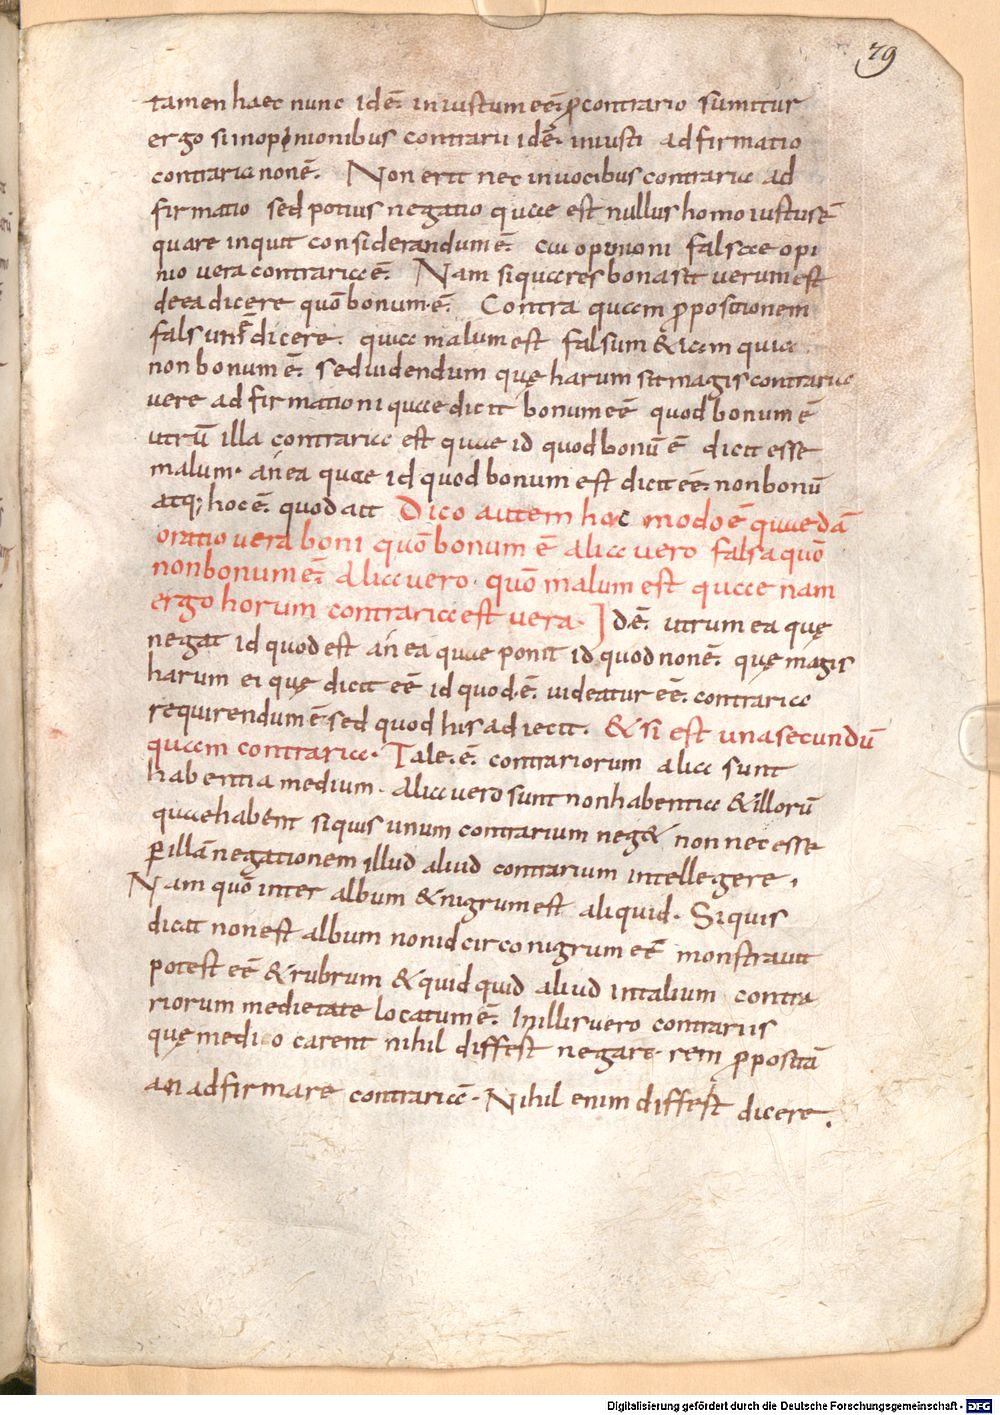 79
tamen haec nunc idē. iniustum eē; ꝓ contrario sumitur
ergo si in opinionibus contrarii idē. iniusti adfirmatio
contraria nonē. Non erit nec in vocibus contraria ad
firmatio sed potius negatio quae est nullus homo iustusē
quare inquit considerandumē. cui opinioni falsae opi
nio vera contraria ē. Nam si quae res bona sit verum est
de ea dicere quō bonum.ē. Contra quam ꝓpositionem
falsum ē dicere. quia malum est falsum & iam quia
non bonum ē. Sed videndum quę harum sit magis contraria
vere adfirmationi quae dicit bonum eē quod bonum ē
utrū illa contraria est quae id quod bonū ē dicit esse
malum. an ea quae id quod bonum est dicit eē. non bonū
atq; hoc ē. quod ait Dico autem hoc modo ē quaedā
oratio vera boni quō bonum ē alia vero falsa quō
non bonum ē. Alia vero. quō malum est quae nam
ergo horum contraria est vera. Idē. utrum ea quę
negat id quod est an ea quae ponit id quod nonē. quę magis
harum ei quę dicit eē id quod.ē. videatur eē. contraria
requirendum ē sed quod his adiecit. & si est una secundū
quam contraria. Tale.ē. contrariorum alia sunt
habentia medium. Alia vero sunt non habentia & illorū
quae habent si quis unum contrarium neg& non necesse
ꝑ illā negationem illud aliud contrarium intellegere.
Nam quō inter album & nigrum est aliquid. Si quis
dicat non est album non idcirco nigrum eē monstravit
potest eē & rubrum & quid quid aliud in talium contra
riorum medietate locatum ē. In illis vero contrariis
quę medio carent nihil differt negare rem ꝓpositā
an adfirmare contrariā. Nihil enim differt dicere.
Digitalisierung gefördert durch die Deutsche Forschungsgemeinschaft - DFG